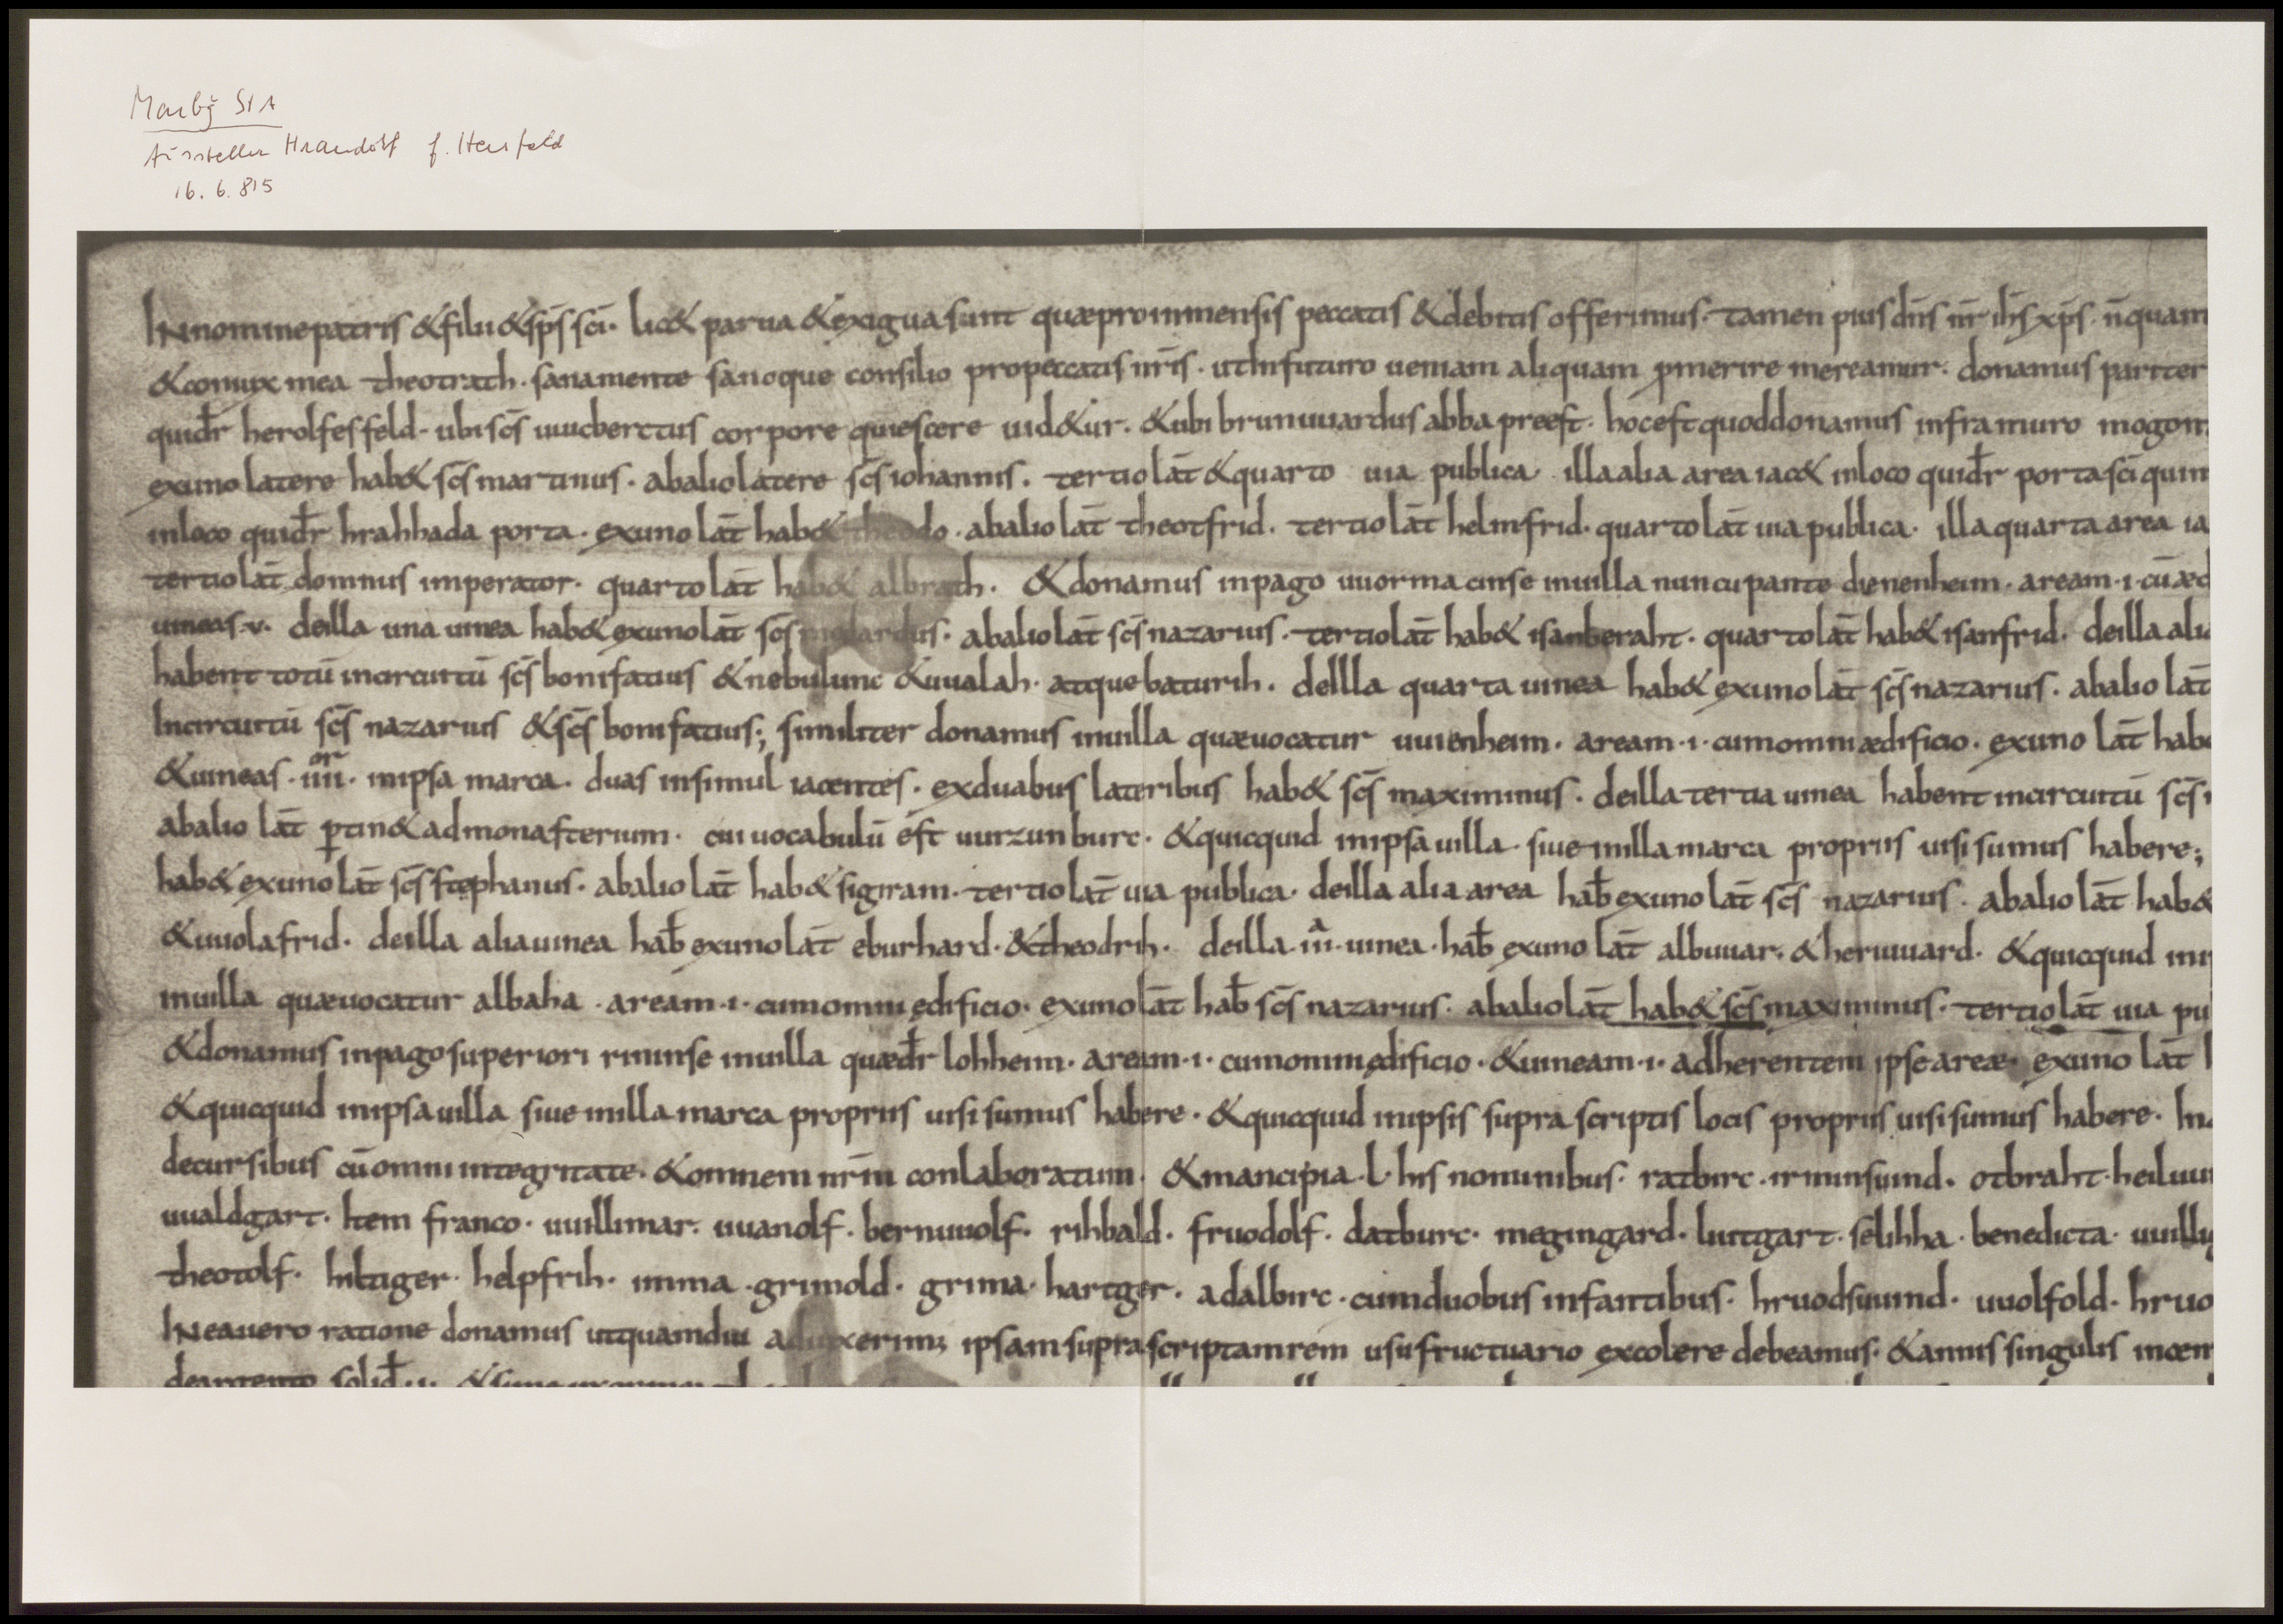 Marbg StA
Aussteller Hraudolf f. Hersfeld
16. 6. 815
IN nomine patris & filii & sp̄s sc̄i · lic& parua & exigua sunt quæ pro inmensis peccatis & debitis offerimus · tamen pius dn̄s nr̄ ih̄s xp̄s · n̄quam
& coniux mea theotrath · sana mente sanoque consilio pro peccatis nr̄is · ut in futuro ueniam aliquam p̄merire mereamur · donamus pariter
quid̄r herolfesfeld · ubi sc̄s uuicberctus corpore quiescere uid&ur · & ubi brunuuardus abba preest · hoc est quod donamus infra muro mogon
ex uno latere hab& sc̄s martinus · ab alio latere sc̄s iohannis · tertio lat̄ & quarto uia publica · illa alia area iac& in loco quid̄r porta sc̄i quin
in loco quid̄r hrahhada porta · ex uno lat̄ hab& theodo · ab alio lat̄ theotfrid · tertio lat̄ helmfrid · quarto lat̄ uia publica · illa quarta area ia
tertio lat̄ domnus imperator · quarto lat̄ hab& albrath · & donamus in pago uuormacinse in uilla nuncupante dienenheim · aream · i · cū æd
uineas · v · de illa una uinea hab& ex uno lat̄ sc̄s · ab alio lat̄ sc̄s nazarius · tertio lat̄ hab& isanberaht · quarto lat̄ hab& isanfrid · de illa alia
habent totū in circuitū sc̄s bonifatius & nebulunc & uualah · atque baturih · de illa quarta uinea hab& ex uno lat̄ sc̄s nazarius · ab alio lat̄
In circuitū sc̄s nazarius & sc̄s bonifatius; similiter donamus in uilla quæ uocatur uuienheim · aream · i · cum omni ædificio · ex uno lat̄ hab&
& uineas · iiii^or · in ipsa marca · duas insimul iacentes · ex duabus lateribus hab& sc̄s maximinus · de illa tertia uinea habent in circuitū sc̄s
ab alio lat̄ p̱tin& ad monasterium · cui uocabulū est uurzunburc · & quicquid in ipsa uilla siue in illa marca propriis uisi sumus habere;
hab& ex uno lat̄ sc̄s stephanus · ab alio lat̄ hab& sigiram · tertio lat̄ uia publica · de illa alia area hab̄ ex uno lat̄ sc̄s nazarius · ab alio lat̄ hab&
& uuolafrid · de illa alia uinea hab̄ ex uno lat̄ eburhard · & theodrih · de illa · iii^a · uinea · hab̄ ex uno lat̄ albuuar · & heriuuard · & quicquid in
in uilla quæ uocatur albaha · aream · i · cum omni ędificio · ex uno lat̄ hab̄ sc̄s nazarius · ab alio lat̄ hab& sc̄s maximinus · tertio lat̄ uia pu
& donamus in pago superiori rininse in uilla quæd̄r lohheim · aream · i · cum omni ędificio · & uineam · i · adherentem ipse areæ · ex uno lat̄
& quicquid in ipsa uilla siue in illa marca propriis uisi sumus habere · & quicquid in ipsis supra scriptis locis propriis uisi sumus habere · In
decursibus cū omni integritate · & omnem nr̄m conlaboratum · & mancipia · L · his nominibus · ratbirc · irminsuind · otbraht · heiluu
uualdgart · Item franco · uuillimar · uuanolf · bernuuolf · rihbald · fruodolf · datburc · megingard · liutgart · selihha · benedicta · uuillig
theotolf · hiltiger · helpfrih · imma · grimold · grima · hartger · adalbirc · cum duobus infantibus · hruodsuuind · uuolfold · hruo
IN ea uero ratione donamus ut quamdiu aduixerim; ipsam supra scriptam rem usu fructuario excolere debeamus · & annis singulis in cen
de argento solid̄ · i ·